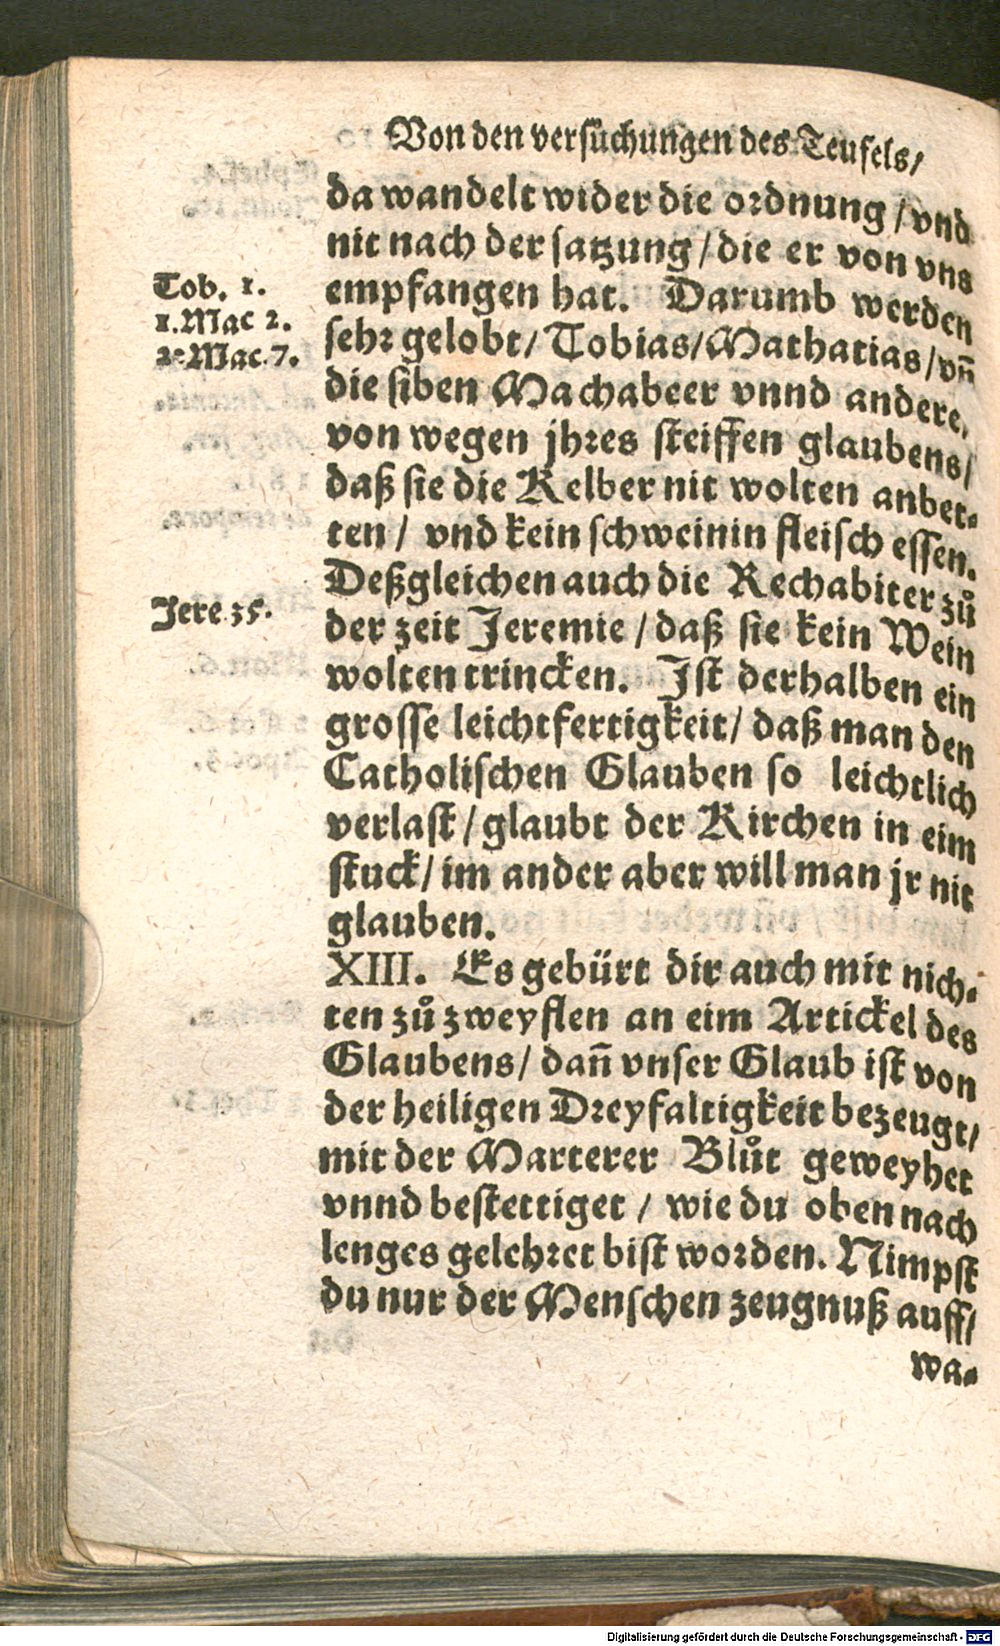 Von den versuͤchungen des Teufels/
da wandelt wider die ordnung / vnd
nit nach der satzung / die er von vns
empfangen hat. Darumb werden
sehr gelobt / Tobias / Mathatias / vñ
die siben Machabeer vnnd andere,
von wegen jhres steiffen glaubens/
daß sie die Kelber nit wolten anbet-
ten / vnd kein schweinin fleisch essen.
Deßgleichen auch die Rechabiter zů
der zeit Jeremie / daß sie kein Wein
wolten trincken. Ist derhalben ein
grosse leichtfertigkeit / daß man den
Catholischen Glauben so leichtlich
verlast / glaubt der Kirchen in eim
stuck / im ander aber will man jr nit
glauben.
XIII. Es gebürt dir auch mit nich-
ten zů zweyflen an eim Artickel des
Glaubens / dañ vnser Glaub ist von
der heiligen Dreyfaltigkeit bezeugt/
mit der Marterer Blůt geweyhet
vnnd bestettiget / wie du oben nach
lenges gelehret bist worden. Nimpst
du nur der Menschen zeugnuß auff/
wa-
Tob. 1.
1. Mac 2.
2. Mac. 7.
Jere. 35.
Digitalisierung gefördert durch die Deutsche Forschungsgemeinschaft - DFG